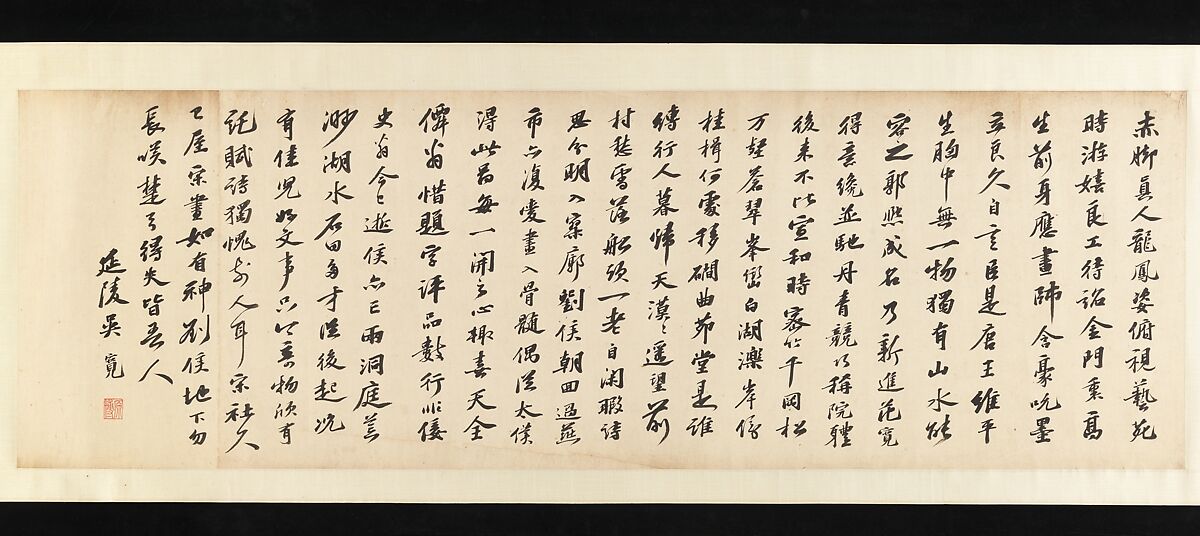 赤腳真人龍鳳姿俯視藝苑
時游嬉良工待詔金門裏高
生前身應畫師含豪吮墨
立良久自言臣是唐王維平
生胸中無一物獨有山水能
容之郭熙成名乃新進范寬
得意纔並馳丹青競乃稱院體
後來不比宣和時家竹千岡松
万疑蒼翠峯巒白湖濼岸傍
桂楫何處移磵曲茆堂是誰
縛行人暮歸天漠漠遥望前
村愁雪落船頭一老自閑暇詩
思分明入寥廓劉侯朝回過燕
市亦復愛畫入骨髓偶從太僕
得此圖每一開之心輒喜天全
僊翁惜題字評品數行非倭
史翁今已逝侯亦亡兩洞庭荒
渺湖水石田多才從後起況
有佳兒好文事只公玄物欣有
託賦詩獨愧前人耳宗社久
已屋宗畫如有神劉侯地下勿
長嘆楚弓得失皆吾人
延陵吳寬